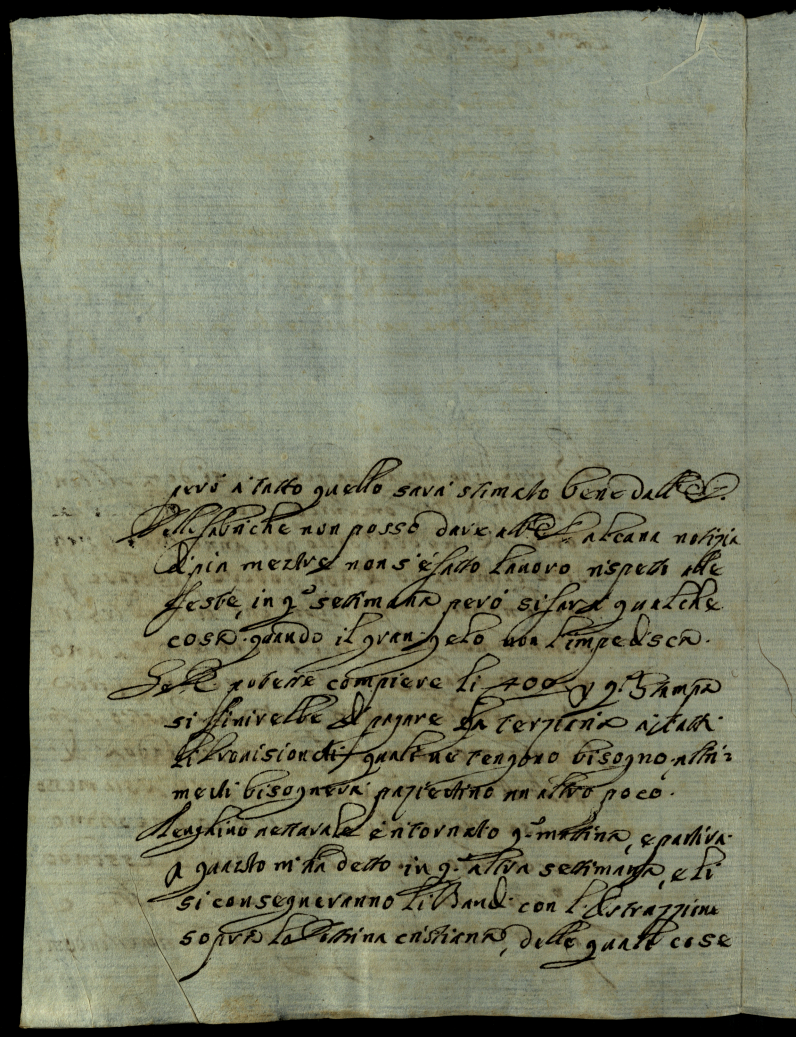 però a tutto quello sarà stimato bene dall'E. S.
Delle fabriche non posso dare all'E. S. alcuna notizia
di più mentre non s'è fatto lavoro rispetto alle
feste, in q.a settimana però si farà qualche
cosa quando il gran gelo non l'impedisca.
Se potesse compiere li 400 q.a stampa
si finirebbe di pagare la terziaria a tutti
li provisionati quali ne tengono bisogno, altri=
menti bisognerà pazientino un altro poco.
è ritornato q.a mattina, e partirà
a quanto m'ha detto in q.a altra settimana, e li
si consegneranno li Bandi con l'Istruzzione
sopra la Dottrina cristiana, delle quali cose